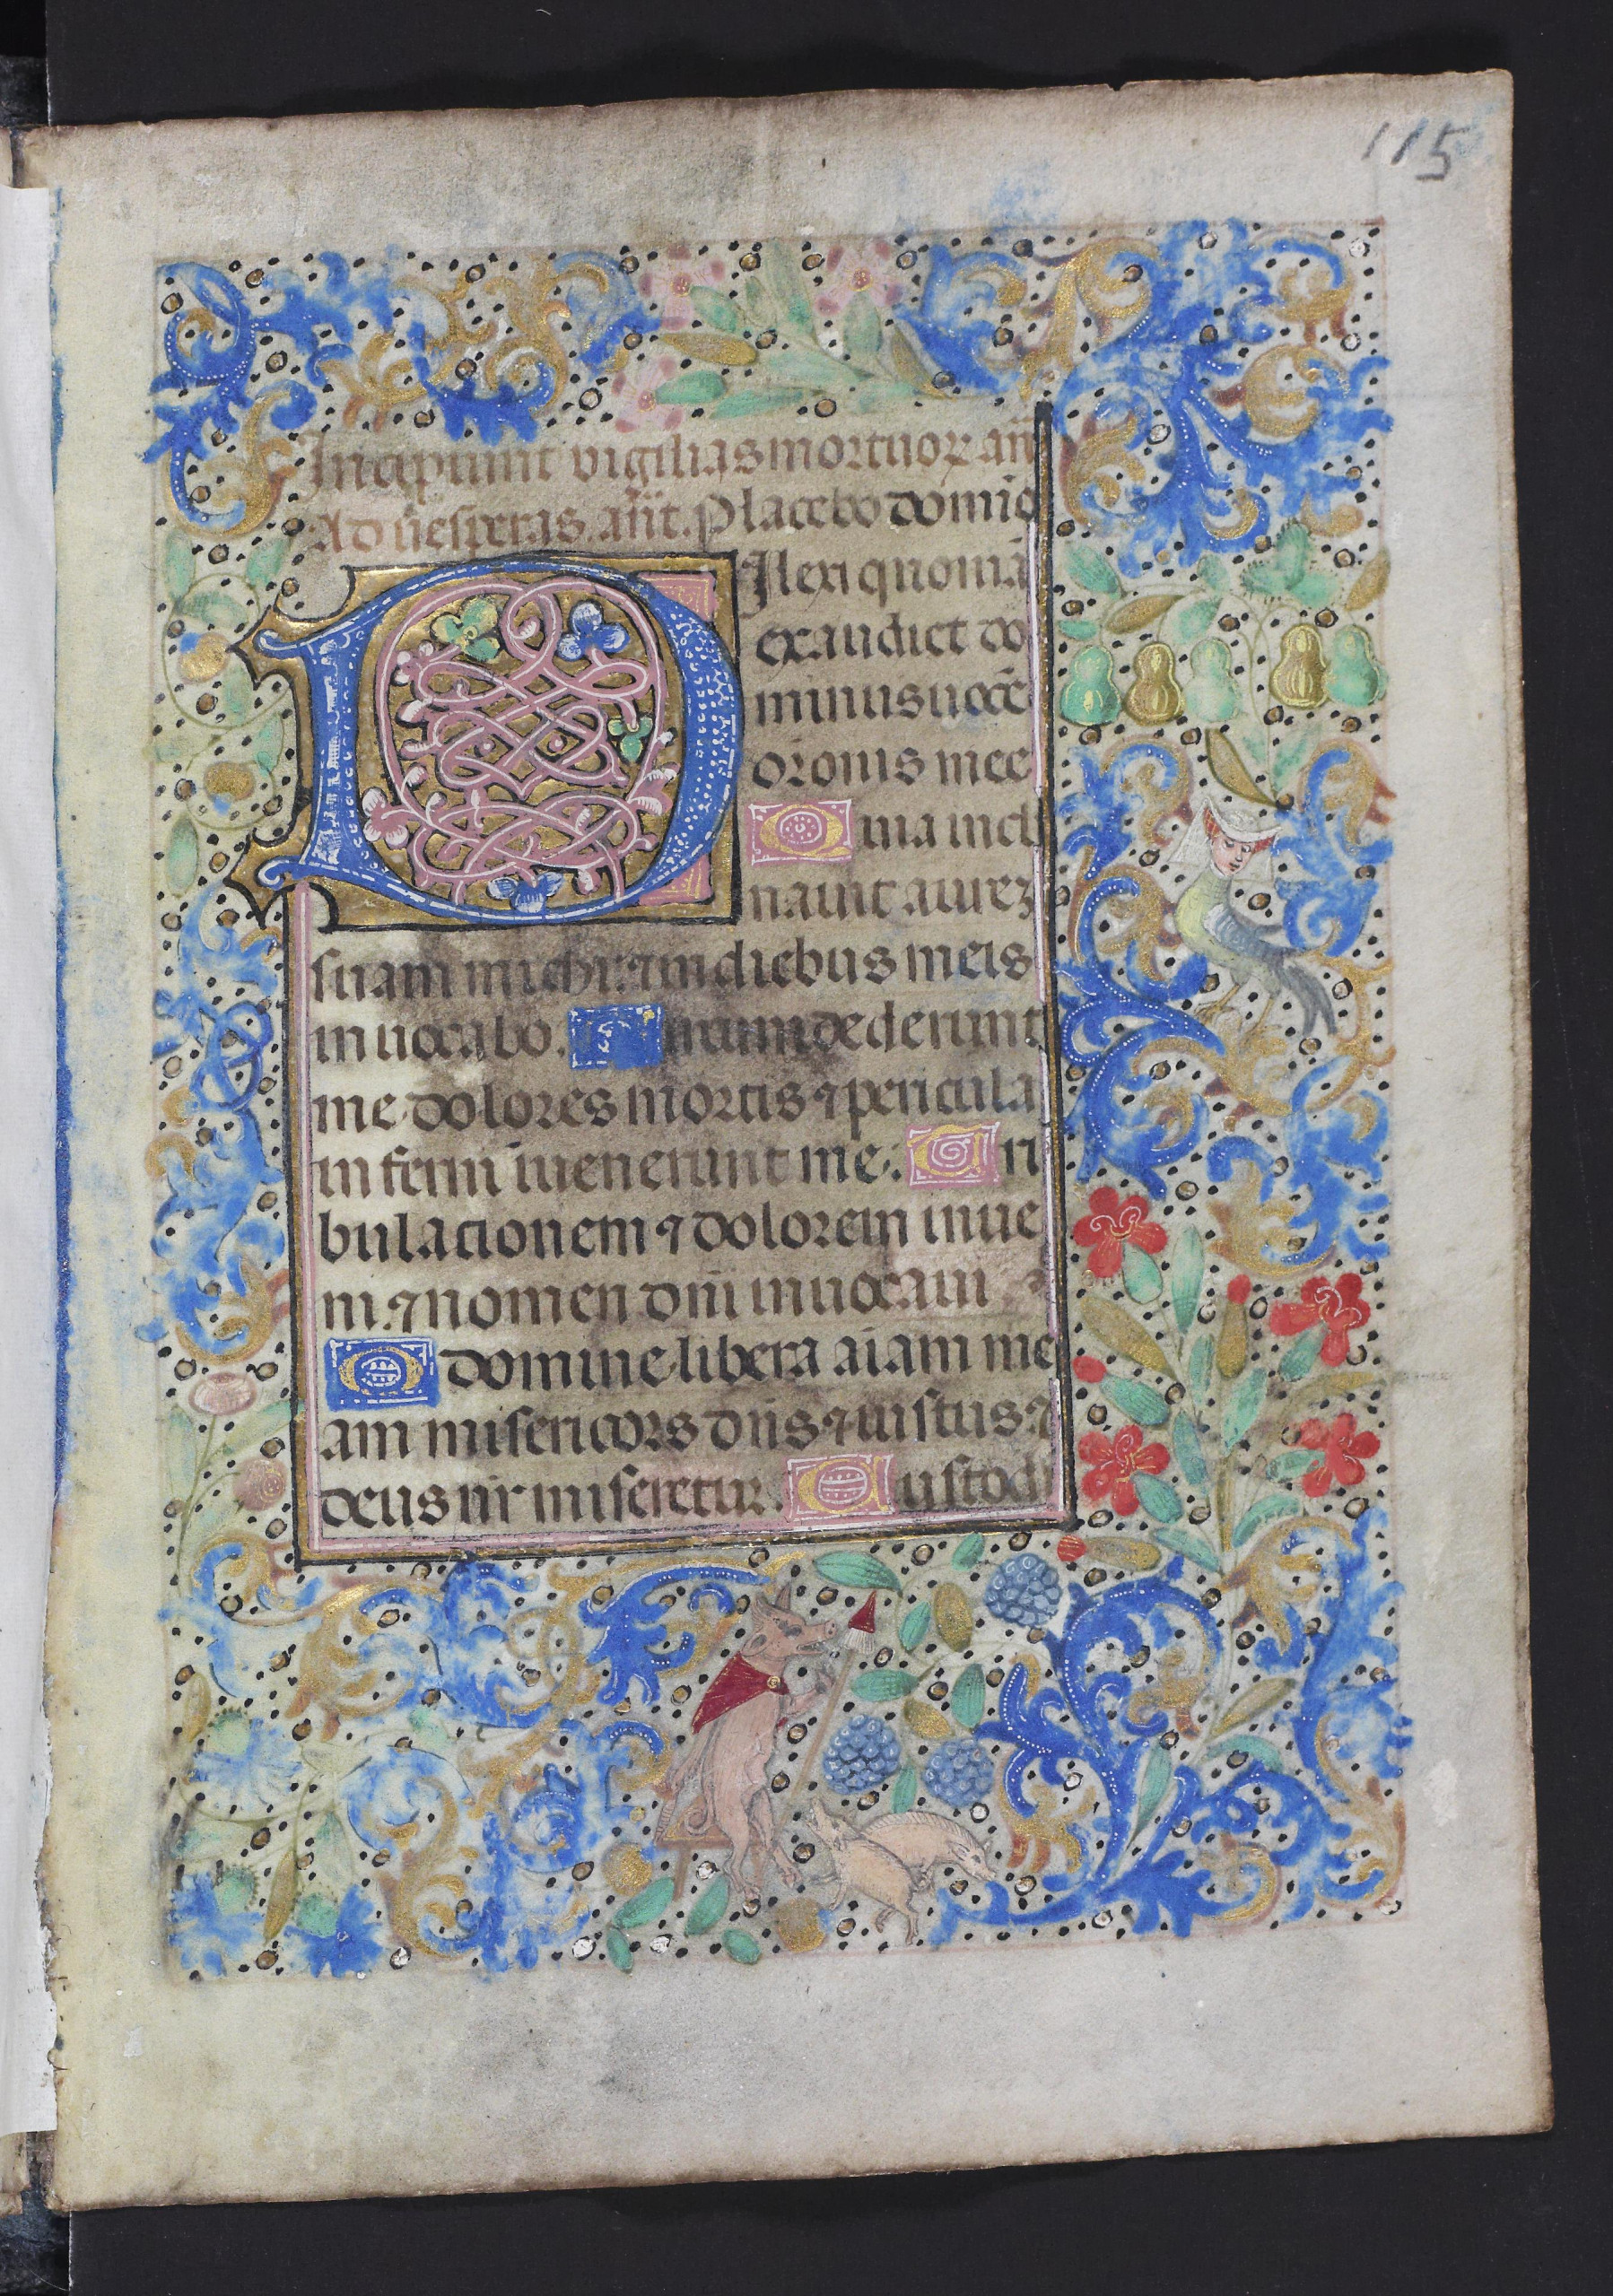 115
Incipiunt vigilias mortuoꝝ an̄
Ad uesperas. an̄t. Placebo domīo
DIlexi quoniā
exaudiet do
minus uocē
or̄onis mee
Quia incli
nauit aurez
suam michi: ⁊ in diebus meis
inuocabo. Circumdederunt
me dolores mortis ⁊ pericula
inferni īuenerunt me. Tri
bulacionem ⁊ dolorem inue
ni. ⁊ nomen dn̄i inuocaui
O domine libera aīam me
am misericors dn̄s ⁊ iustus ⁊
deus nr̄ miseretur. Custodi